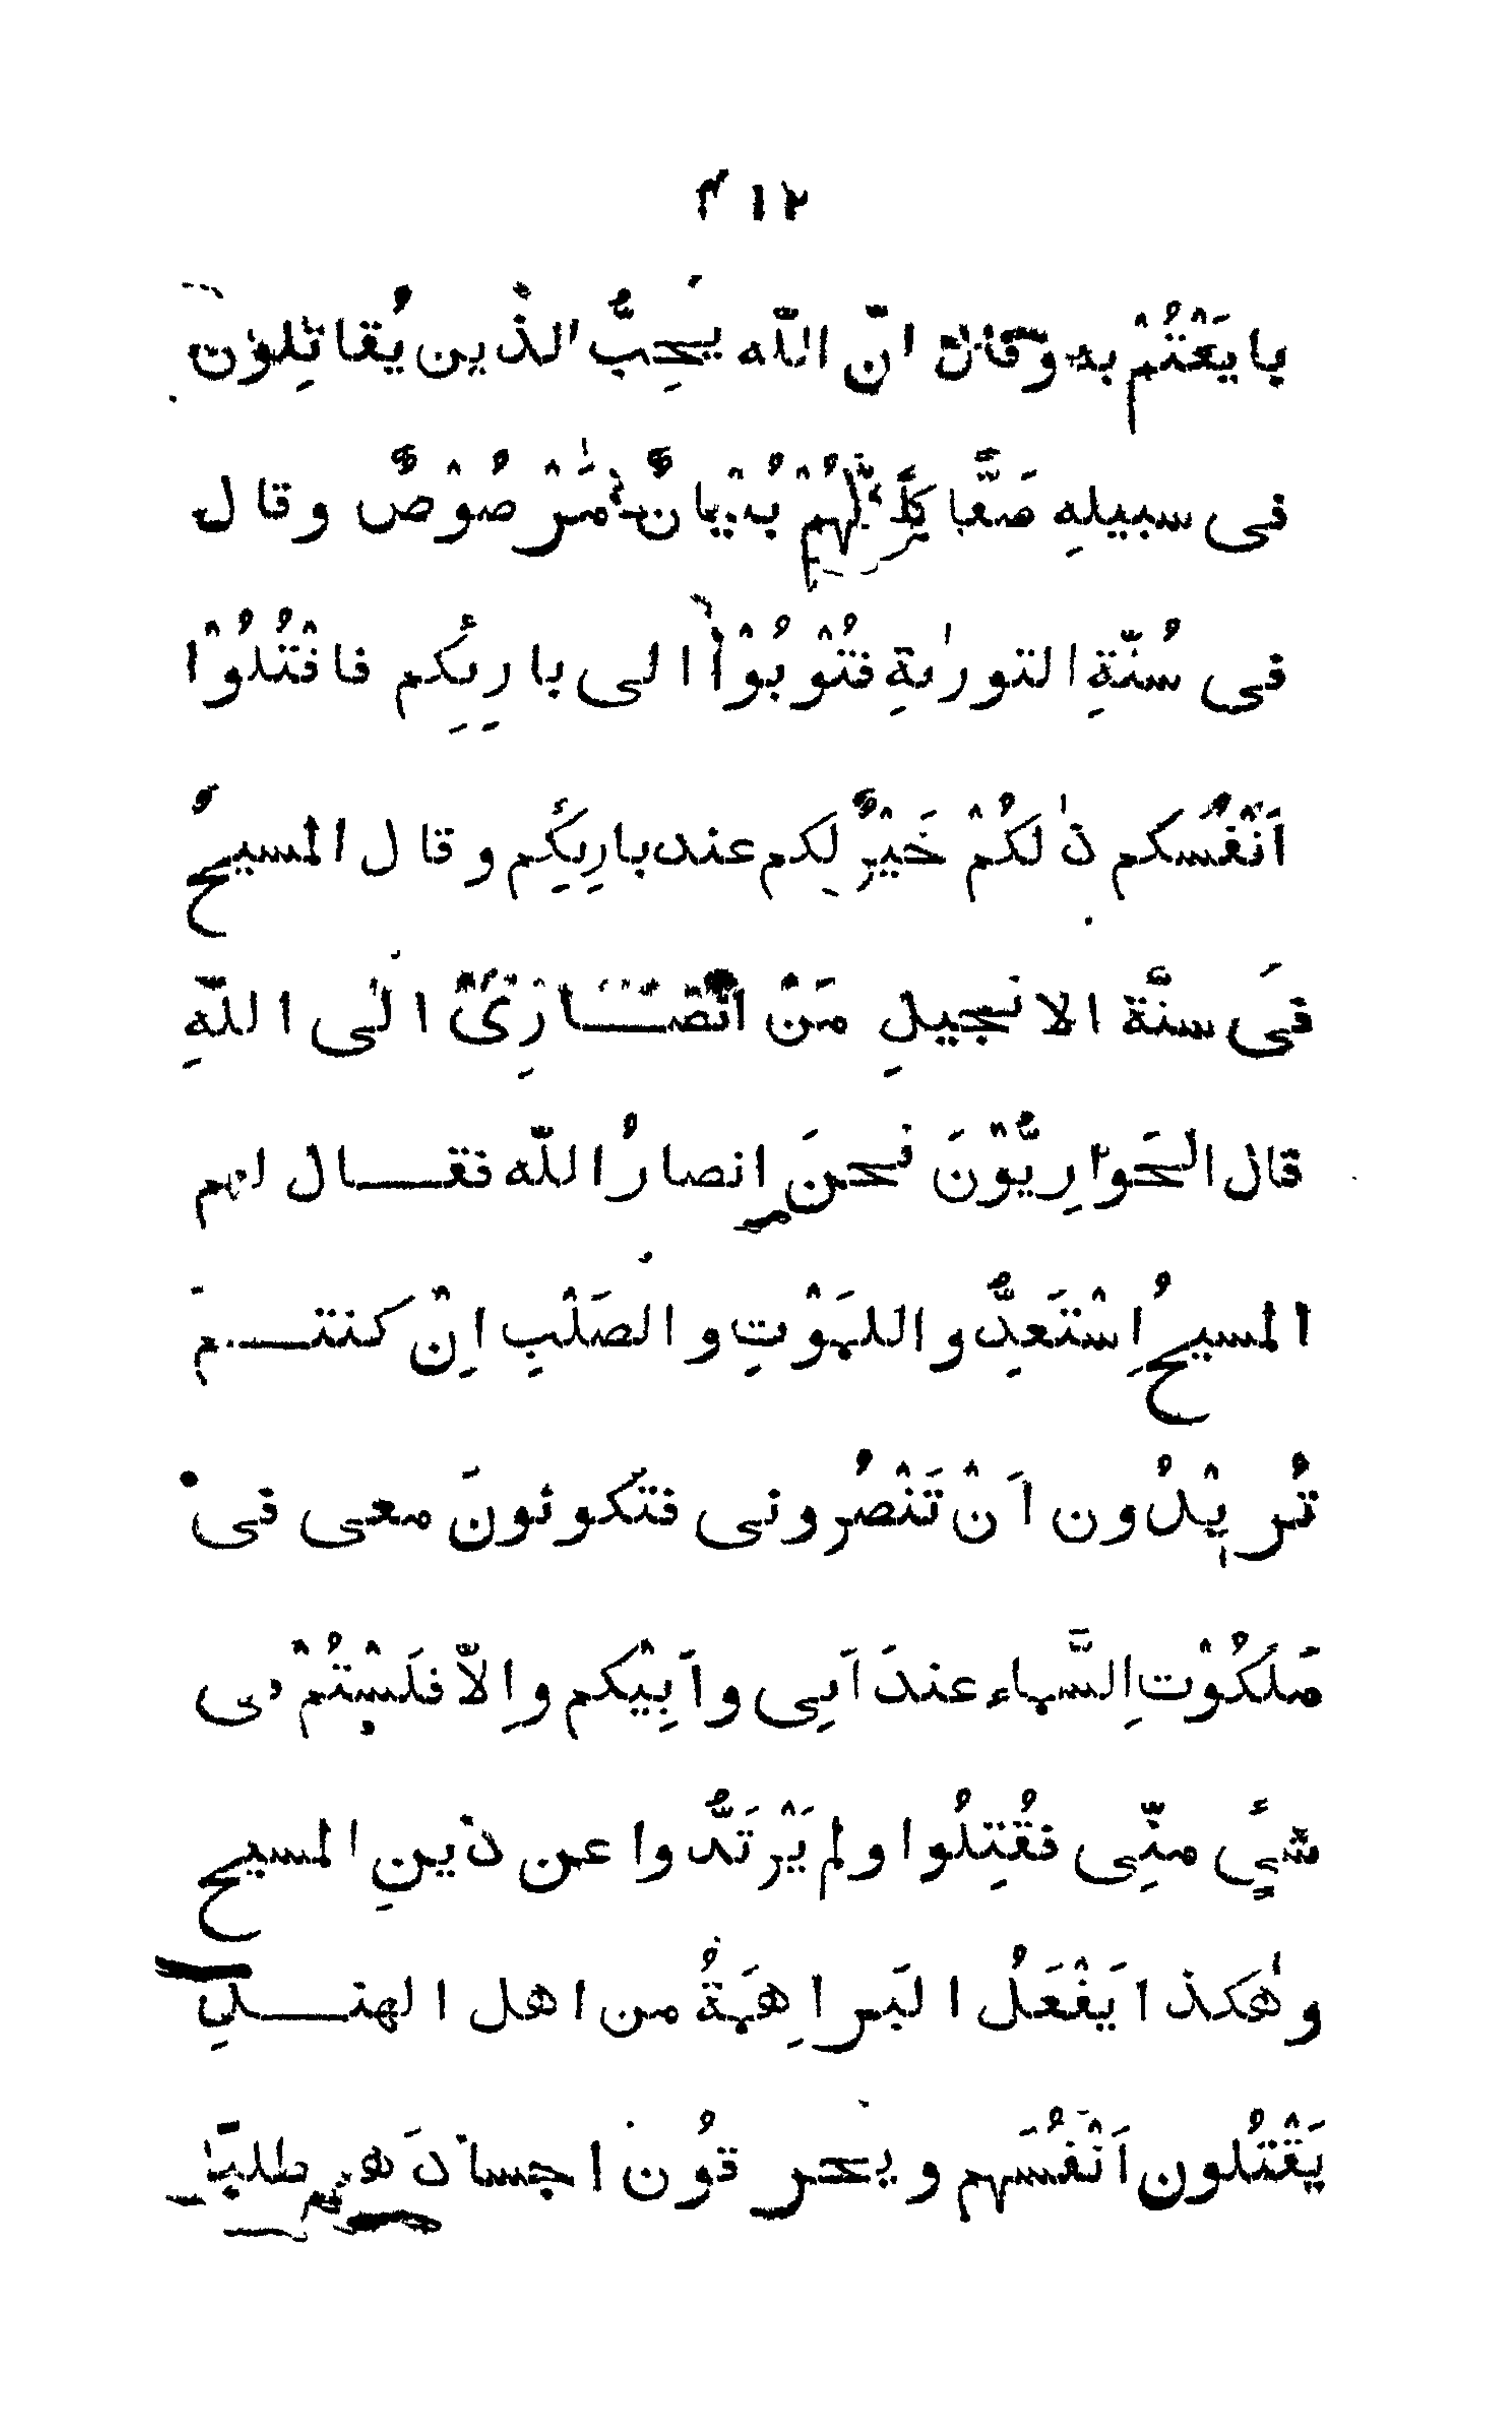 ٢١٢
بايَعْتُمْ به وقال انّ اللّه يحِبُّ الذين يُقاتِلون
فى سبيلهِ صَفًّا كأنّهُمْ بُنْيانٌ مَرْصُوْصٌ وقال
فى سُنّةِ التورٰىةِ فتُوْبُوْا الى بارِئِكم فاقْتُلُوْا
اَنْفُسَكم ذٰلكُمْ خَيْرٌ لكم عند بارِئِكِم وقال المسيحُ
فى سنّة الانجيلِ مَنْ اَنْصَارِىْ الى اللّهِ
قال الحَوارِيُّوْنَ نحنَ انصارُ اللّه فقال لهم
المسيحُ اِسْتَعِدُّوا للمَوْتِ والصَلْبِ اِنْ كنتم
تُريْدُون اَنْ تَنْصُرونى فتَكونونَ معى فى
مَلَكُوْتِ السَّماء عندَ اَبِى واَبِيْكم واِلاّ فلَسْتُمْ فى
شئٍ منِّى فقُتِلُوا ولم يَرْتَدُّوا عن دينِ المسيح
وهٰكذا يَفْعَلُ البَراهِمَةُ من اهل الهندِ
يَقْتُلون اَنْفُسَهم ويحرقُون اجسادَهم طلبًا